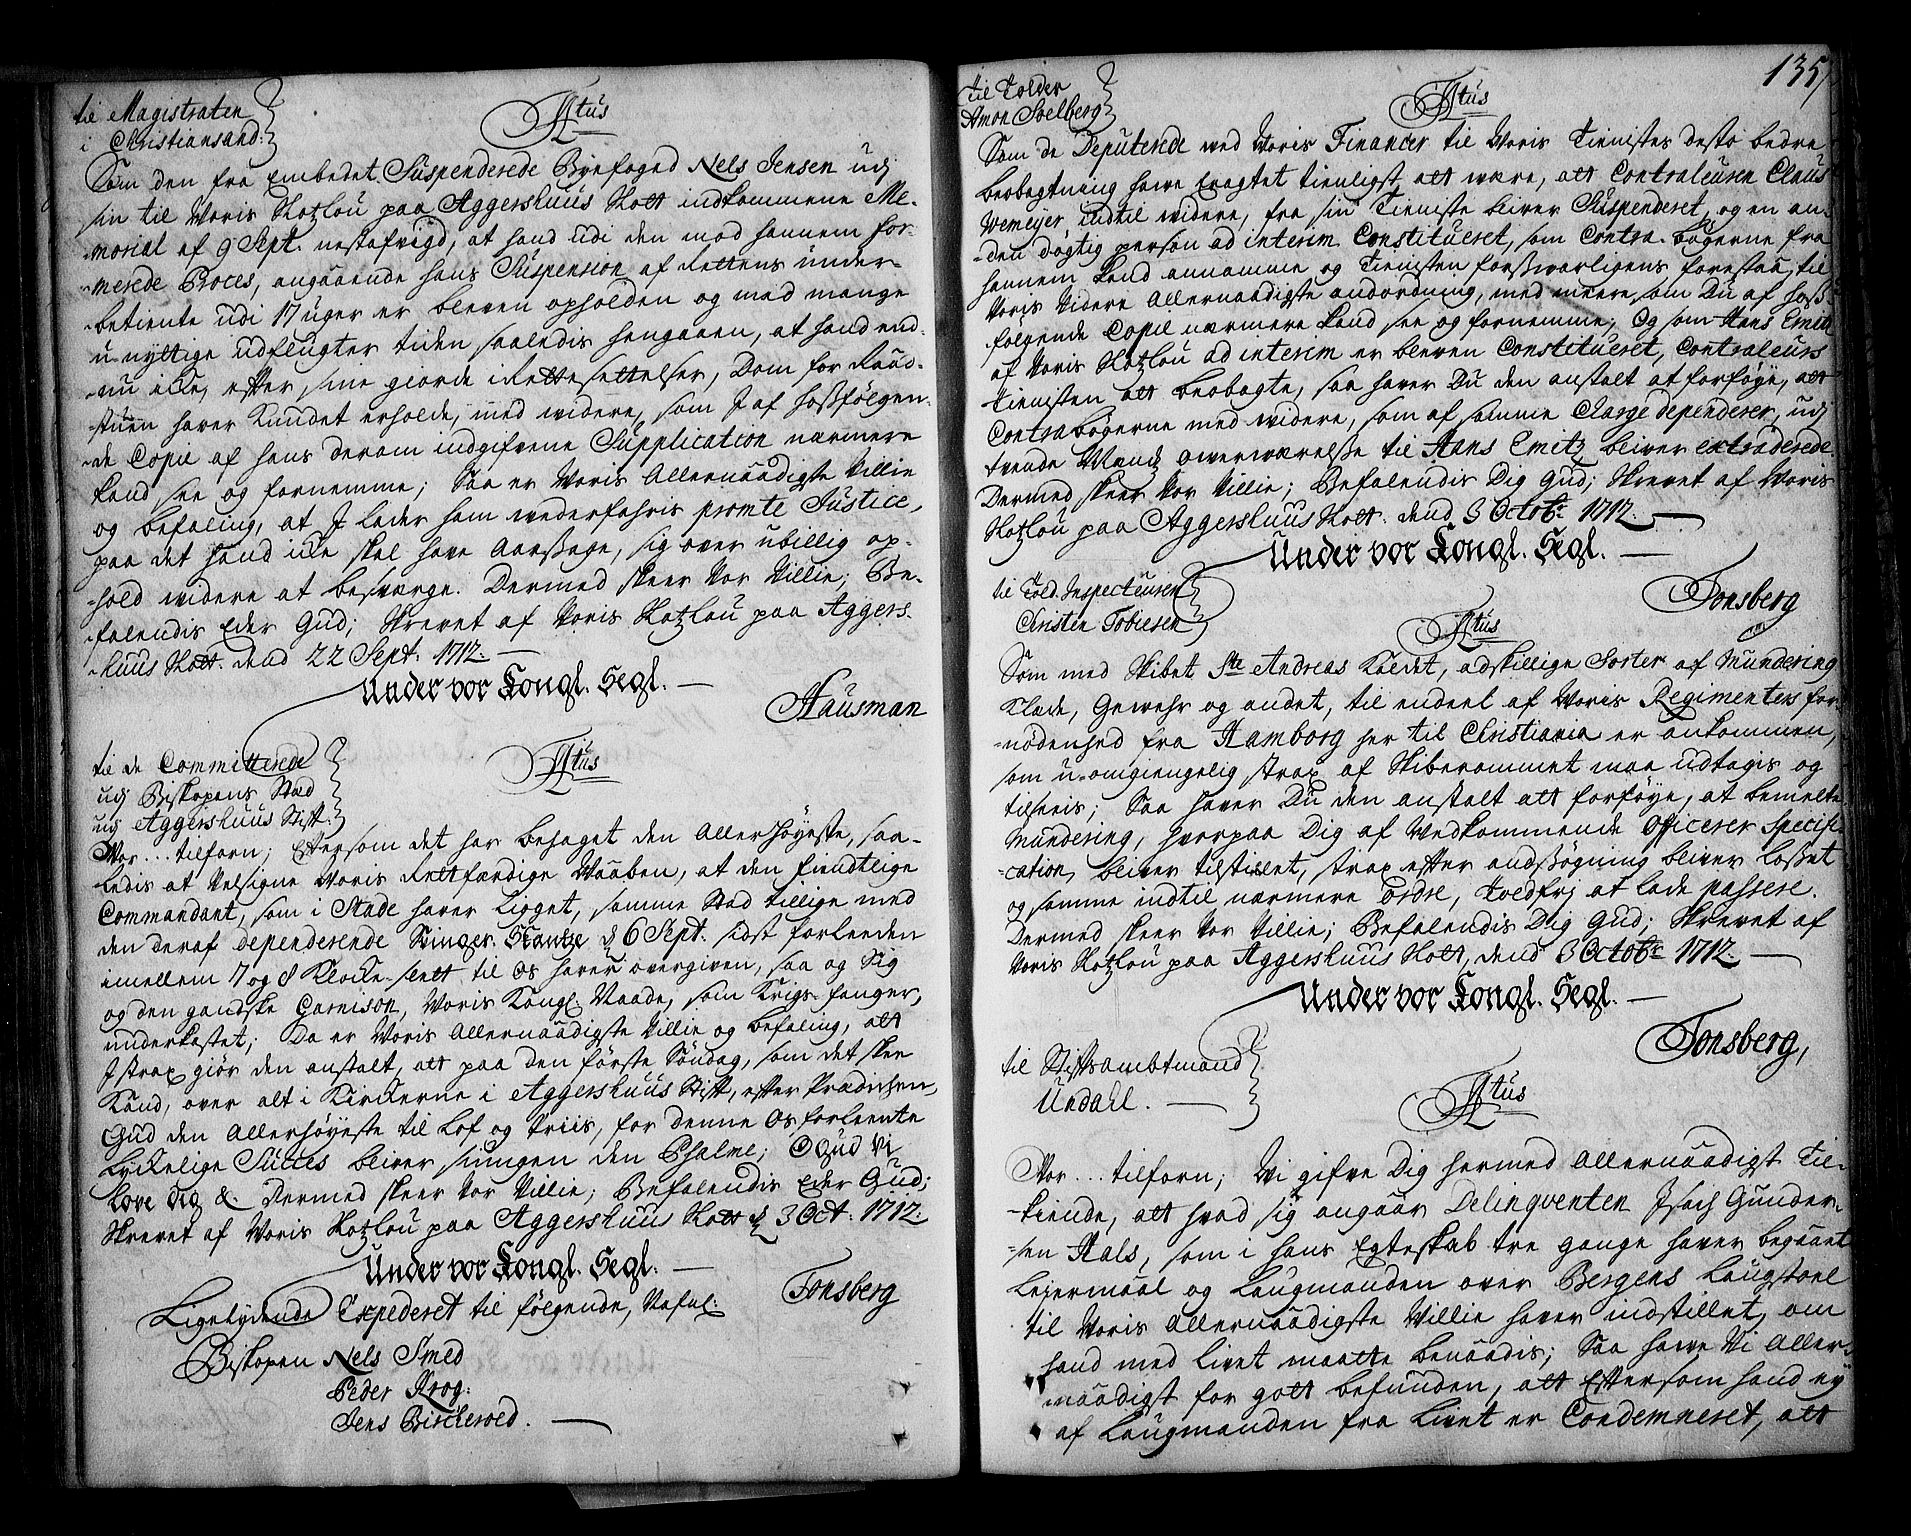 til Magistraten
i Christiansand:
Ftus
Som den fra Embedet Suspenderede Byefoged Nels Jensen udj
sin til Voris Slotzlou paa Aggershuus Slott indkommene Me-
-morial af 9 Sept. nestafvigd, at hand udi den mod hannem for-
-merede Proces, angaaende hans Suspension af Rettens under-
-betiente udi 17 uger er bleven opholden og med mange
u-nyttige udflugter tiden saaledis hengaaen, at hand end-
-nu icke, efter sine giorde iRettesettelser, Dom for Raad-
stuen haver kundet erholde, med widere, som J af hoßfølgen-
de Copie af hans derom indgifvene Supplication nærmere
kand see og fornemme; Saa er Voris Allernaadigste Villie
og befaling, at J lader ham wederfahris promte Justice,
paa det hand icke skal have Aarsage, sig over ubillig op-
-hold widere at besværge. Dermed skeer Vor Villie; Be-
falendis Eder Gud; Skrevet af Voris Slotzlou paa Aggers-
huus Slott. dend 22 Sept: 1712.
Under vor Kongl. Segl.
Hausman
til de Committerede
udj Biskopens Sted
udj Aggershuus Stift.
Ftus
Wor... tilforn; Eftersom det har behaget den Allerhøyeste, saa-
ledis at Velsigne Voris Retfærdige Waaben, at den fiendtlige
Commandant, som i Stade haver Ligget, samme Stad tillige med
den deraf dependerende Swinger Skantze d 6 Sept. sidst forleeden
imellem 7 og 8 Klocke-slett til Os haver overgiven, saa og Sig
og den gandske Garnison, Voris Kongl. Naade, som Krigs-fanger,
underkastet; Da er Voris Allernaadigste Villie og befaling, att
J strax giør den anstalt, att paa den første Søndag, som det skee
kand, over alt i Kirkerne i Aggershuus Stift, efter Prædichen,
Gud den Allerhøyeste til Lof og Priis, for denne Os forleente
Lyckelige Succes bliver siungen den Psalme; O Gud Vi
Love dig &. Dermed skeer Vor Villie; Befalendis Eder Gud;
Skrevet af Voris Slotzlou paa Aggershuus Slott d 3 Oct: 1712.
Under vor Kongl. Segl.
Tonsberg
Ligelydende Expederet til følgende, Nafnl:
Biskopen Nels Smed
Peder Krog.
Jens Bircherod.
135
til Tolder
Amon Soelberg
Ftus
Som de Deputerede ved Voris Financer til Voris Tienistes desto bedre
beobagtning have eragtet tienligst att være, att Contraleuren Claus
Wemejer indtil widere, fra sin Tieniste bliver Suspenderet, og en an-
-den døgtig person ad interim Constitueret, som Contra-bøgerne fra
hannem kand annamme og Tienisten forsvarligens forestaa, til
Voris Videre Allernaadigste andordning, med meere som Du af hoß-
følgende Copie nærmere kand see og fornemme; Og som Hans Emitz
af Voris Slotzlou ad interim er bleven Constitueret, Contraleurs
Tienisten att beobagte, saa haver Du den anstalt at forføye, att
Contrabøgerne med widere, som af samme Charge dependerer, udj
tvende Mends overværelse til Hans Emitz bliver extraderede.
Dermed skeer Vor Villie; Befalendis Dig Gud; Skrevet af Voris
Slotzlou paa Aggershuus Slott. dend 3 Octobr 1712.
Under vor Kongl. Segl.
Tonsberg
til Told-Inspecteuren
Christen Tobiesen
Ftus
Som med Skibet Ste Andreas Kaldet, adskillige Sorter af Mundering
Klæde, Gewehr og andet, til endeel af Voris Regimenters for-
-nødenhed fra Hamborg her til Christiania er ankommen,
som u-omgiengelig strax af Skiberommet maa udtagis og
tilseeis; Saa haver Du den anstalt att forføye, at bemelte
Mundering, hvorpaa Dig af Vedkommende Officerer Specifi-
-cation bliver tilstillet, strax efter andsøgning bliver Losset
og samme indtil nærmere Ordre, toldfrj at lade passere.
Dermed skeer Vor Villie; Befalendis Dig Gud; Skrevet af
Voris Slotzlou paa Aggershuus Slott, dend 3 Octobr 1712.
Under vor Kongl. Segl.
Tonsberg,
til Stiftsambtmand
Undall.
Ftus
Wor... tilforn; Vi gifve Dig hermed Allernaadigst Til-
-kiende, att hvad sig angaar Delinqventen Jsach Gunder-
-sen Hals, som i hans Egteskab tre gange haver begaaet
Leiermaal og Laugmanden over Bergens Laugstoel
til Voris Allernaadigste Villie haver indstillet, om
hand med Livet maatte benaadis; Saa have Vi Aller-
-naadigst for gott befunden, att Eftersom hand ey
af Laugmanden fra Livet er Condemneret, att